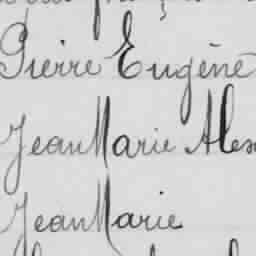 Pierre Eugène
Jean Marie Alex
Jean Marie